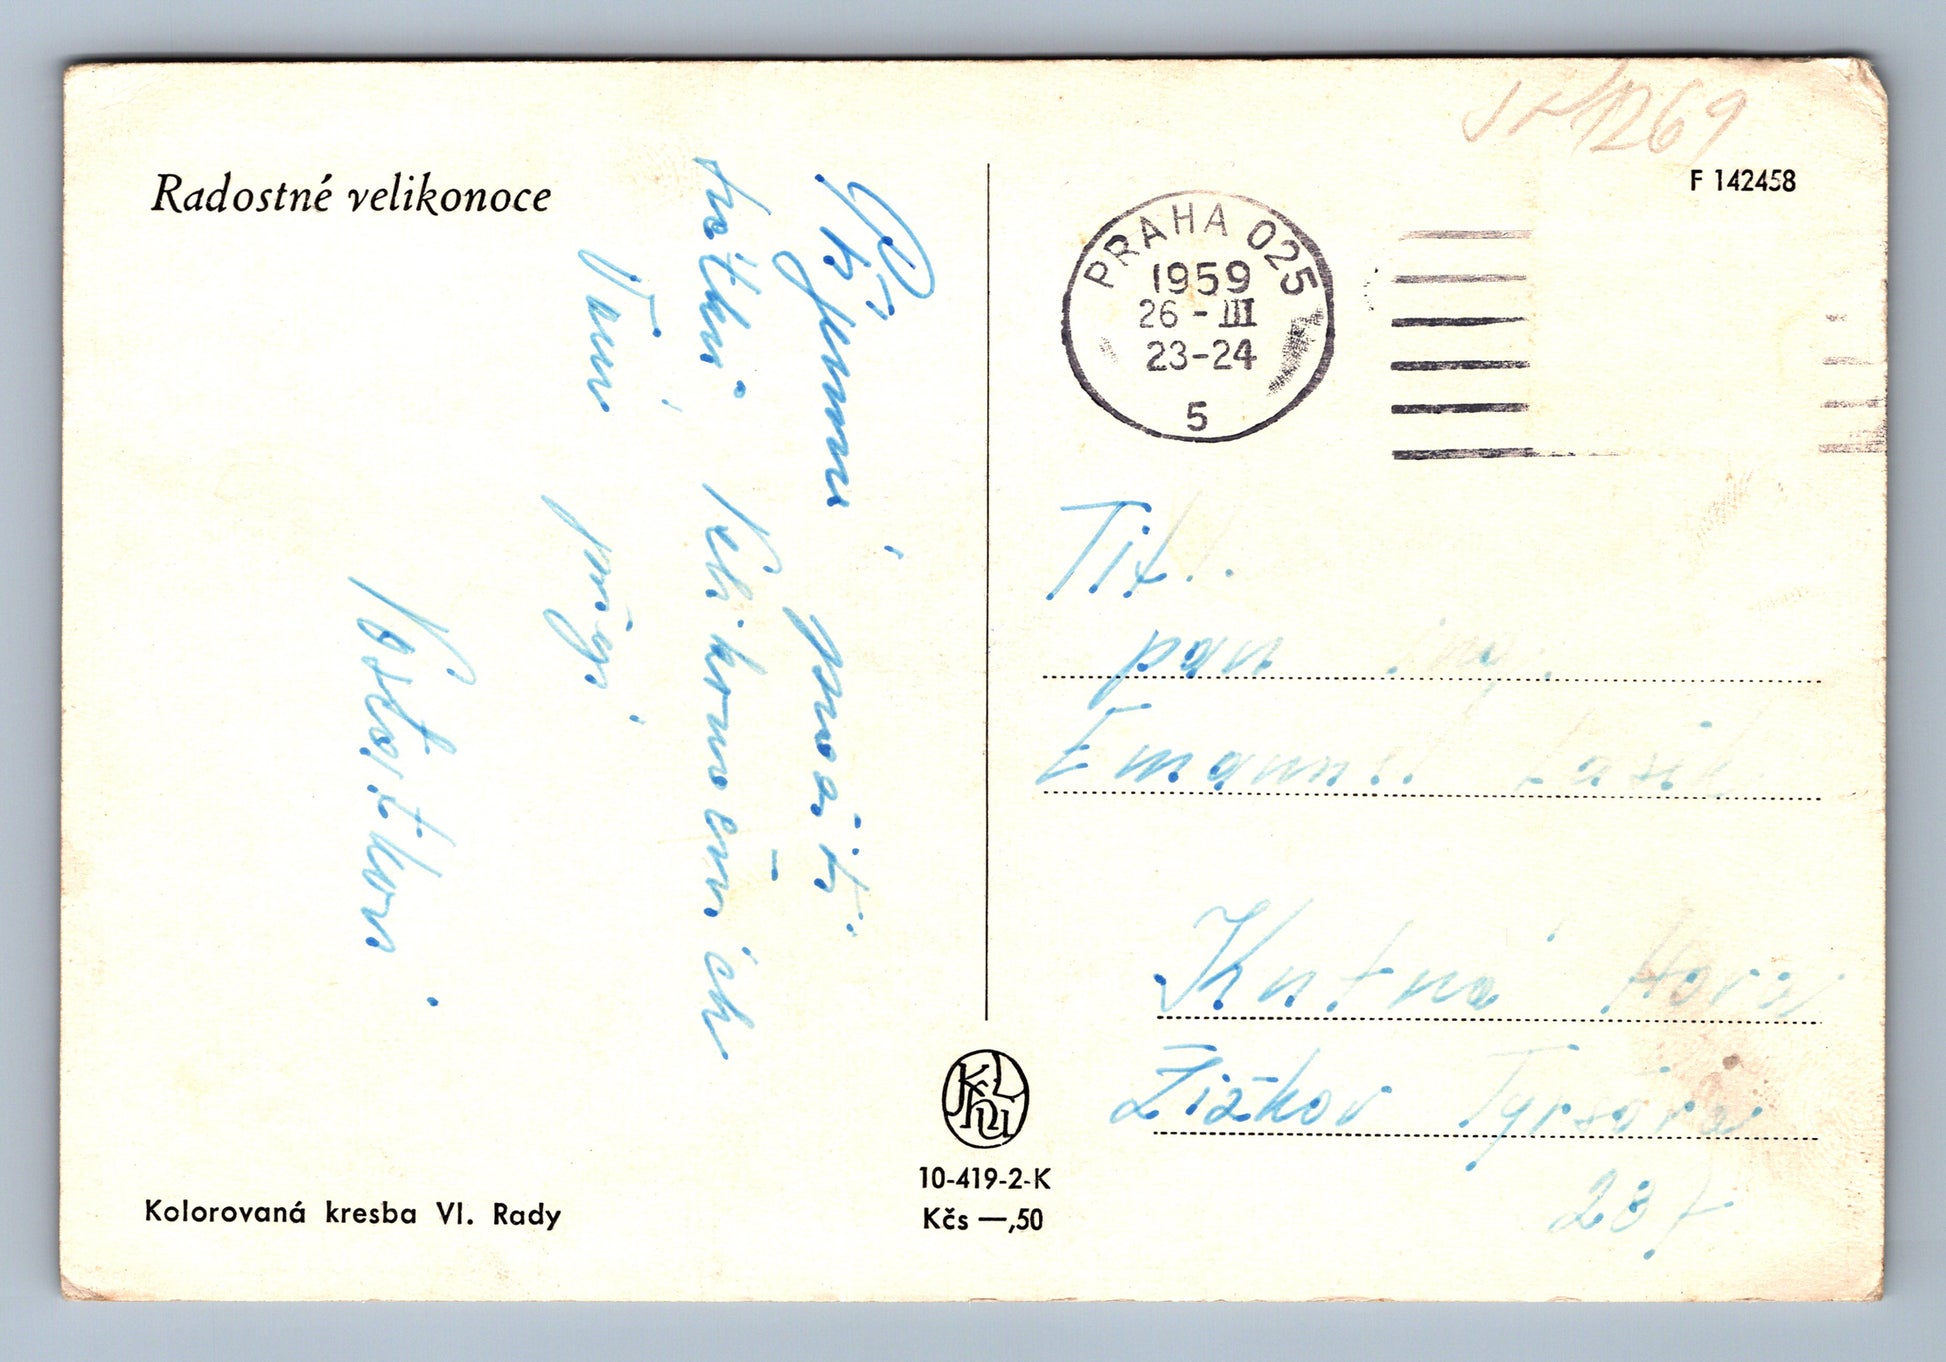 Radostné velikonoce
Příjemné prožití
svátků velikonočních
Vám přejí
Kolorovaná kresba Vl. Rady
10-419-2-K
Kčs —,50
F 142458
PRAHA 025
1959
26-III
23-24
5
Tit..
pan ing.
Emanuel
Kutná Hora
Žižkov Tyršova